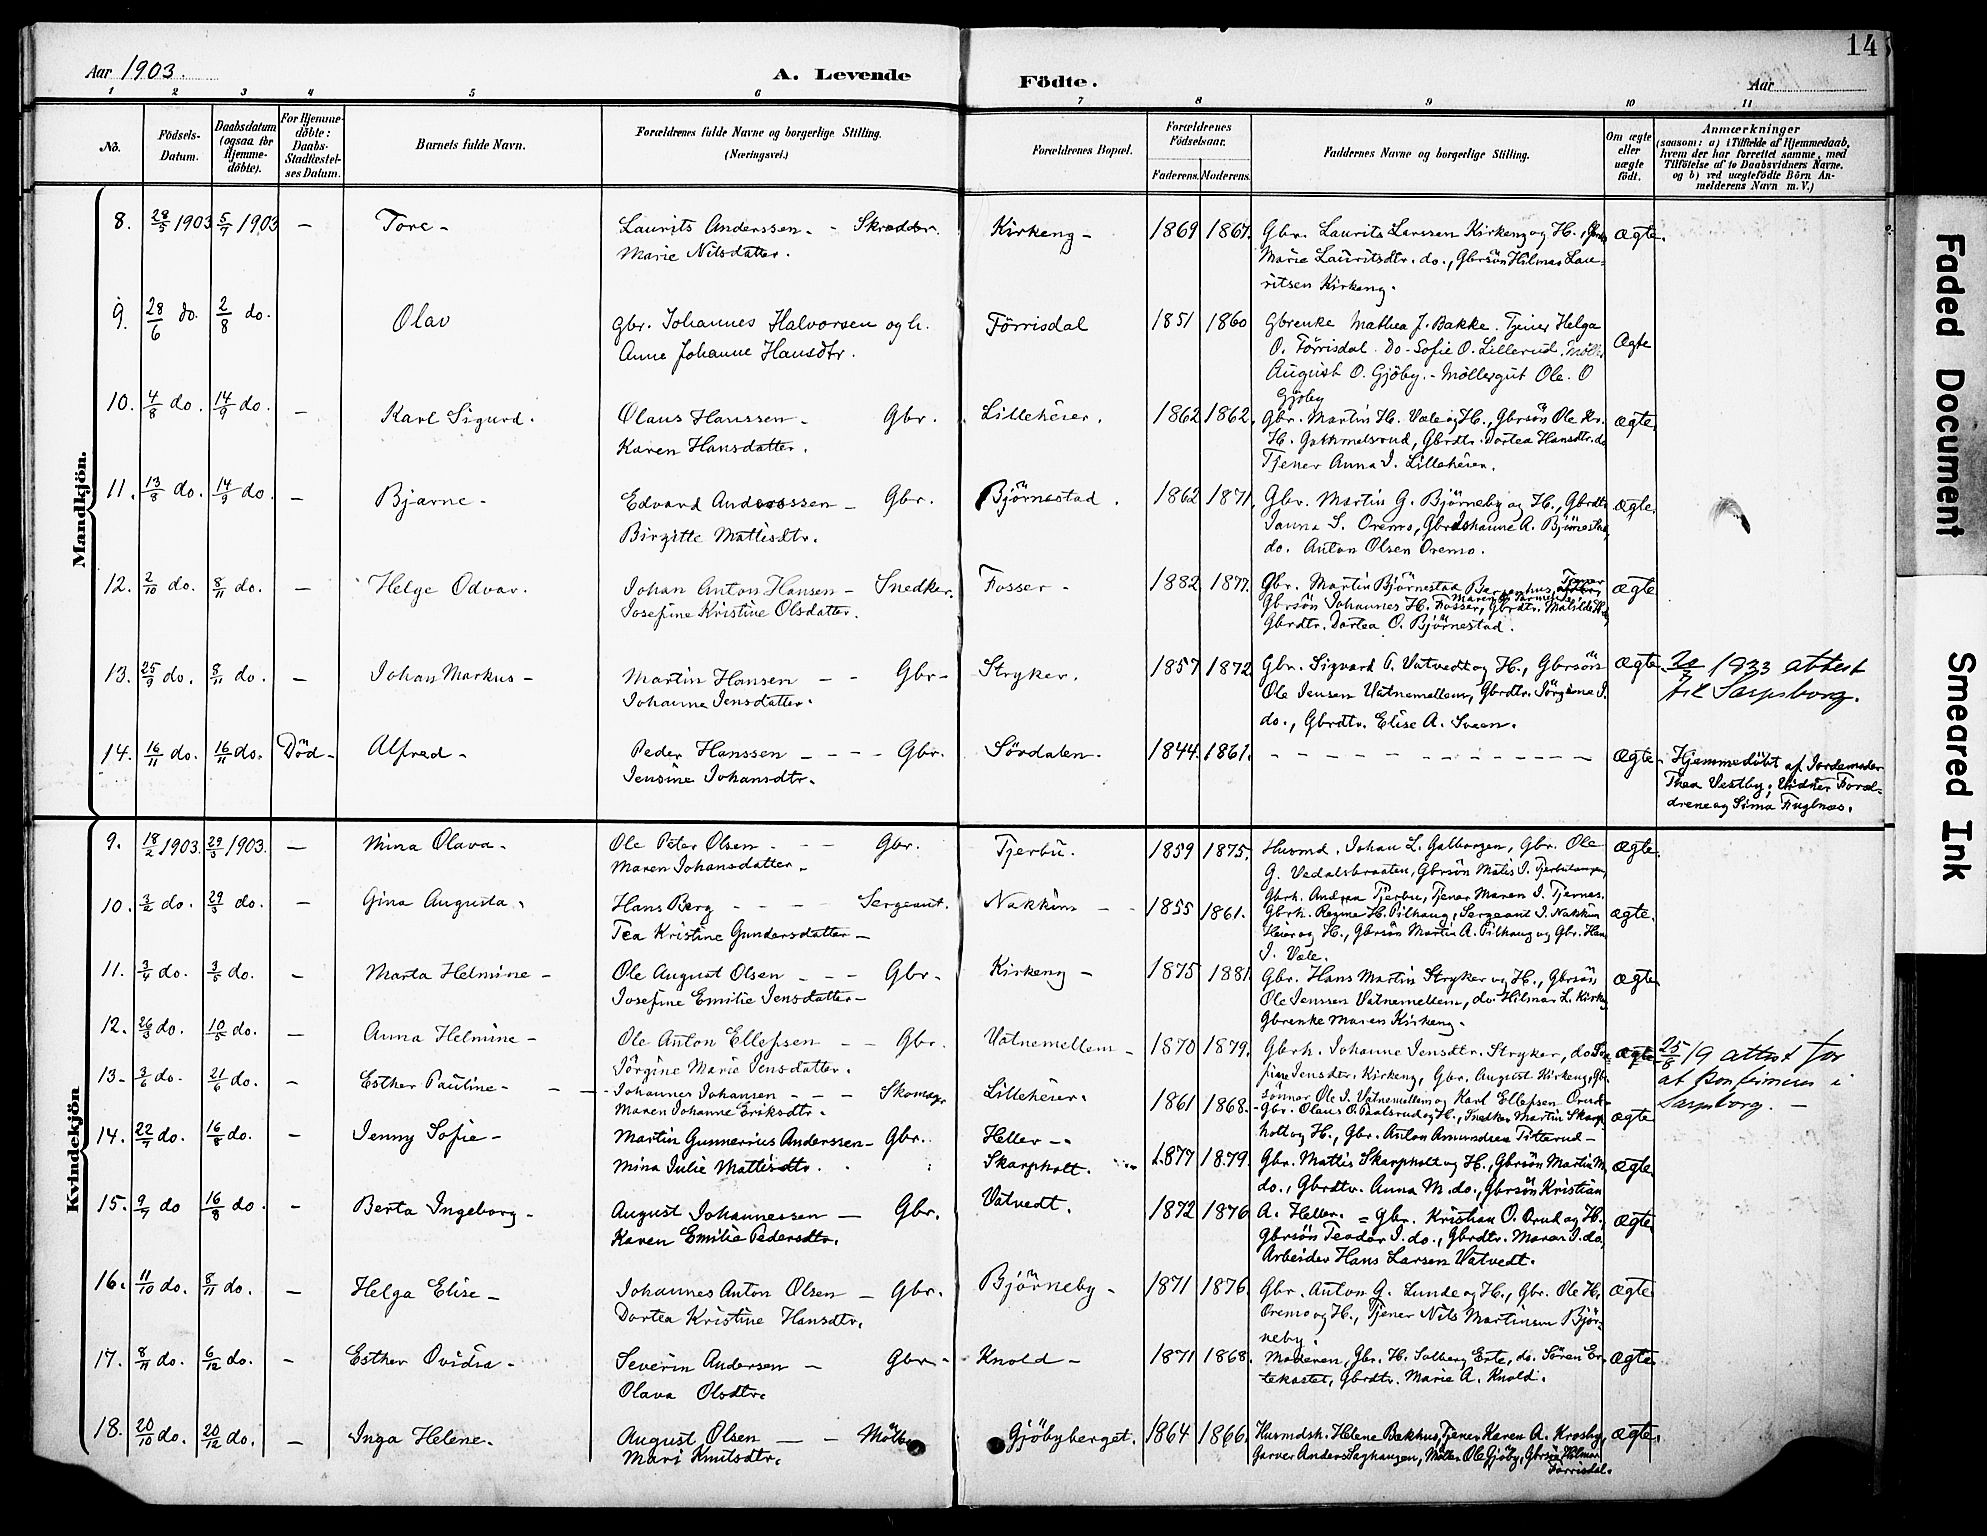 14
Aar 1903.
A. Levende Födte.
Aar
1 2 3 4 5 6 7 8 9 10 11
No.
Födsels-Datum.
Daabsdatum (ogsaa for Hjemme-döbte).
For Hjemme-döbte: Daabs-Stadfæstel-ses Datum.
Barnets fulde Navn.
Forældrenes fulde Navne og borgerlige Stilling. (Næringsvei.)
Forældrenes Bopæl.
Forældrenes Födselsaar.
Faderens. Moderens.
Faddernes Navne og borgerlige Stilling.
Om ægte eller uægte födt.
Anmærkninger
(saasom: a) i Tilfælde af Hjemmedaab, hvem der har forrettet samme, med Tilföielse af to Daabsvidners Navne. og b) ved uægtefödte Börn An-melderens Navn m. V.)
Mandkjön.
8. 28/5 1903 5/7 1903 – Tore – Laurits Anderssen – Skrædder. Kirkeng – 1869 1867. Gbr. Laurits Larssen Kirkeng og H., ægte.
Marie Nilsdatter. Marie Lauritsdtr. do., Gbrsön Hilmar Lau-
ritsen Kirkeng.
9. 28/6 do. 2/8 do. Olav Gbr. Johannes Halvorsen og h. Törrisdal 1851 1860 Gbrenke Mathea J. Bakke. Tjener Helga Ægte
Anne Johanne Hansdtr. O. Törrisdal. Do – Sofie O. Lillerud.
August O. Gjöby. – Möllergut Ole. O
Gjöby
10. 4/8 do. 14/9 do. – Karl Sigurd. Olaus Hanssen – Gbr. Lilleheier. 1862 1862. Gbr. Martin H. Vale og H., Gbrsön Ole Kr. ægte.
Karen Hansdatter. Gbrdtr. Dortea Hansdtr. do
Tjener Anna I. Lilleheier.
11. 13/8 do. 14/9 do – Bjarne – Edvard Anderssen – Gbr. Björnestad. 1862 1871. Gbr. Martin G. Björneby og H., Gbrdtr. ægte.
Birgitte Mattisdtr. S. Oremo, Johanne A. Björnestad,
do. Anton Olsen Oremo.
12. 2/10 do. 8/11 do. – Helge Odvar. Johan Anton Hansen – Snedker. Fosser – 1882 1877. Gbr. Martin Björnestad ægte
Josefine Kristine Olsdatter. Gbrsön Johannes H. Fosser, Gbrdtr.
Gbrdtr. Dortea O. Björnestad.
13. 25/9 do. 8/11 do. – Johan Markus – Martin Hansen – – Gbr – Stryker. 1857 1872. Gbr. Sigvard A. Vatvedt og H., Gbrsön ægte. 1933 attest
Johanne Jensdatter. Ole Jensen Vatnemellem, Gbrdtr. Jörgine J. til Sarpsborg.
do., Gbrdtr. Elise A. Sveen.
14. 16/11 do. 16/11 do. Död – Alfred – Peder Hanssen – – – Gbr. Sördalen. 1844. 1861. – – – – – – – – – – ægte – Hjemmedöbt af Jordemoder
Jensine Johansdtr. Thea Vestby; Vidner Foræl-
drene og Sima Fuglnæs.
Kvindekjön
9. 18/2 1903. 29/3 1903. – Mina Olava – Ole Peter Olsen – – Gbr. Tjerbu. 1859 1875. Husmd. Johan L. Gbr. Ole ægte.
Maren Johansdatter. G. Vedalsbraaten, Gbrsön Matis J. Tjerbutangen,
Gbrh. Andrea Tjerbu, Tjener Maren I. Tjernes.
10. 3/2 do. 29/3 do. – Gina Augusta. Hans Berg – – – Sergeant. Nakkim – – 1855 1861. Gbrh. Regine H. Pilhaug, Sergeant J. Nakkim ægte.
Tea Kristine Gundersdatter – Heier og H., Gbrsön Martin A. Pilhaug og Gbr. Hans
I. Vale.
11. 3/4 do. 3/5 do. – Marta Helmine – Ole August Olsen – – – Gbr – Kirkeng – 1875 1881. Gbr. Hans Martin Stryker og H., Gbrsön ægte
Josefine Emilie Jensdatter – Ole Jenssen Vatnemellem, do. Hilmar L. Kirkeng
Gbrenke Maren Kirkeng.
12. 26/3 do. 10/5 do. – Anna Helmine – Ole Anton Ellefsen – – Gbr. Vatnemellem – 1870 1879. Gbrh. Johanne Jensdtr. Stryker, do ægte 25/8 19 attest for
Jörgine Marie Jensdatter. fine Jensdtr. Kirkeng, Gbr. August Kirkeng, Gbr. at konfirmeres i
sönner Ole J. Vatnemellem og Karl Ellefsen Orud – Sarpsborg. –
13 – 3/6 do. 21/6 do. – Esther Pauline – – – Johannes Johansen – – – Skomagr Lilleheier. 1861 1868. Gbr. Olaus og H., Snedker Martin Skarp- ægte
Maren Johanne Eriksdtr. holt og H., Gbr. Anton Amundsen Titterud –
14. 22/7 do. 16/8 do. – Jenny Sofie – Martin Gunnerius Anderssen – Gbr. Heller – 1877 1879. Gbr. Mattis Skarpholt og H., Gbrsön Martin M. ægte
Mina Julie Mattisdtr. Skarpholt. do., Gbrdtr. Anna M. do., Gbrsön Kristian
A. Heller.
15. 9/7 do 16/8 do. – Berta Ingeborg – August Johannessen – Gbr. Vatvedt. 1872 1876 = Gbr. Kristian O. Orud og H., ægte
Karen Emilie Pedersdtr. Gbrsön Teodor J. do., Gbrdtr. Maren J. do,
Arbeider Hans Larsen Vatvedt.
16. 11/10 do. 8/11 do. – Helga Elise – Johannes Anton Olsen – Gbr. Björneby – 1871 1876. Gbr. Anton G. Lunde og H., Gbr. Ole H. ægte
Dortea Kristine Hansdtr. Oremo og H., Tjener Nils Martinsen Björ-
neby.
17. 8/11 do. 6/12 do. – Esther Ovidia – Severin Andersen – Gbr – Knold – 1871 1868. Moderen, Gbr. H. Solberg Erte, do. Sören Er- ægte.
Olava Olsdtr. tekastet, Gbrdtr. Marie A. Knold.
18. 20/10 do. 20/12 do. – Inga Helene. August Olsen – – Möller Gjöbyberget. 1864 1866. Husmdsk. Helene Bakhus, Tjener Karen A. Krosby, ægte.
Mari Knutsdtr. Garver Anders Saghaugen, Möller Ole Gjöby, Gbrsön Hilmar
Törrisdal.
Faded Document
Smeared Ink